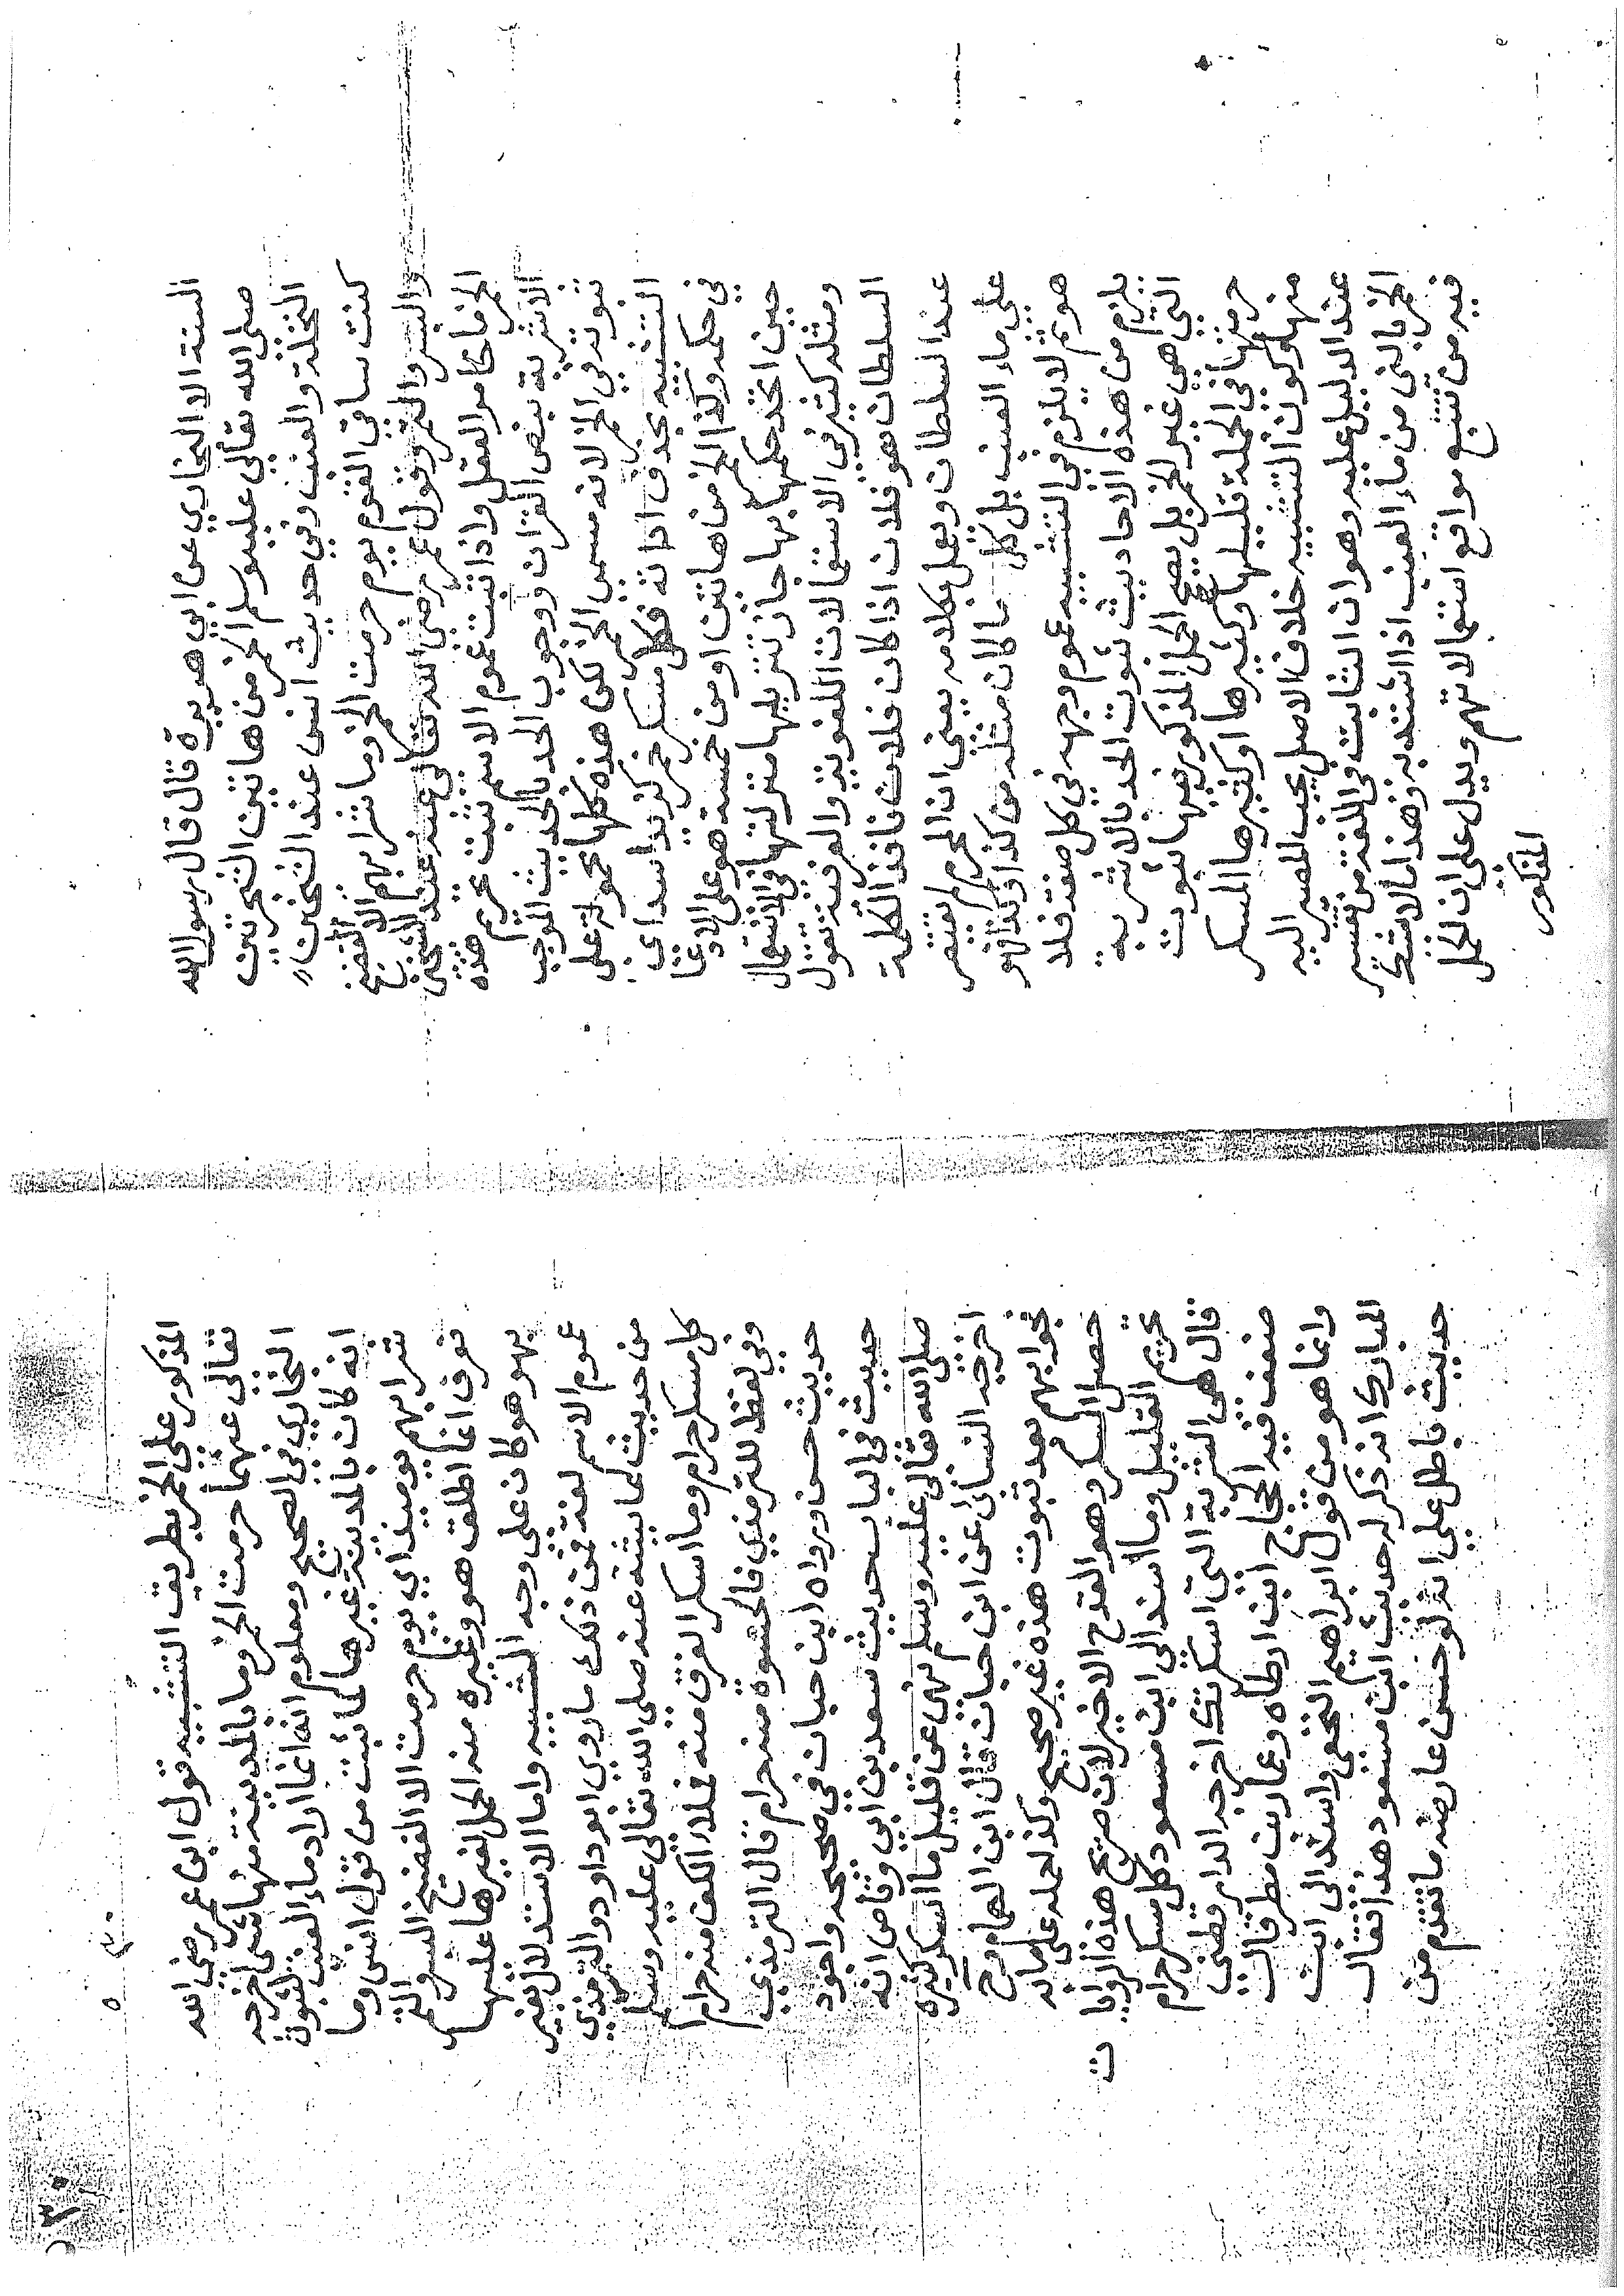 الستة الا البخاري عن ابي هريرة قال قال رسول الله
صلى الله تعالى عليه وسلم الخمر من هاتين الشجرتين
النخلة والعنب وفي حديث انس عند الشيخان
كنت ساقي القوم يوم حرمت الخمر وما شرابهم الا الفضيخ
والبسر والتمر وقول عمر رضي الله تعالى عنه عند الشيخين
الخمر ما خامر العقل واذا ثبت عموم الاسم ثبت تحريم هذه
الاشربة بنص القران ووجوب الحد بالحديث الموجب
ثبوته في الخمر لانه سمى الخمر لكن هذه كلها محمولة على
التشبيه بحذف اداته فكل مسكر خمر كزيد اسد اي
في حكمه وكذا الخمر من هاتين او من خمسة هو على الادعا
حين اتخذ حكمها بها جاز تنزيلها منزلتها في الاستعمال
ومثله كثير في الاستعمالات اللغوية والعرفية تقول
السلطان هو فلان اذا كان فلان نافذ الكلمة
عند السلطان ويعمل بكلامه يعني ان المحرم لم يقتصر
على ماء العنب بل كل ما كان مثله من كذا وكذا فهو
هو ثم لا يلزم في التشبيه عموم وجهه في كل صفة فلا
يلزم من هذه الاحاديث ثبوت الحد بالاشربة
التي هي غير الخمر بل يصح الحمل المذكور فيها بثبوت
حرمتها في الجملة قليلها وكثيرها او كثيرها المسكر
منها وكون التشبيه خلاف الاصل يجب المصير اليه
عند الدليل عليه وهو ان الثابت في اللغة من تفسير
الخمر بالنى من ماء العنب اذا اشتد وهذا لا يشك
فيه من تتبع مواقع استعمالاتهم ويدل على ان الحمل
المذكور
المذكور على الخمر بطريق التشبيه قول ابن عمر رضي الله
تعالى عنهما حرمت الخمر وما بالمدينة منها شى اخرجه
البخاري في الصحيح ومعلوم انه انما اراد ماء العنب لثبوت
انه كان بالمدينة غيرها لما ثبت من قول انس وما
شرابهم يوميذ اي يوم حرمت الا الفضيخ البسر والتمر
فعرف انما اطلق هو وغيره منه الحمل لغيرها عليها
بهو هو كان على وجه التشبيه واما الاستدلال بغير
عموم الاسم لغة فمن ذلك ما روى ابو داود والترمذي
من حديث عايشة عنه صلى الله تعالى عليه وسلم
كل مسكر حرام وما اسكر الفرق منه فملاء الكف منه حرام
وفي لفظ للترمذي فالحسوة منه حرام قال الترمذي
حديث حسن ورواه ابن حبان في صحيحه واجود
حديث في الباب حديث سعد بن ابي وقاص انه
صلى الله تعالى عليه وسلم نهى عن قليل ما اسكر كثيره
اخرجه النسائ عن ابن حبان قال ابن الهمام وح
فجوابهم بعد ثبوت هذه غير صحيح وكذا حمله على ما به
حصل السكر وهو القدح الاخير لان صريح هذه الروايات
تحريم القليل وما اسند الى ابن مسعود كل مسكر حرام
قال هى الشربة التي اسكرتك اخرجه الدارقطني
ضعف فيه الحجاج ابن ارطاه وعمار بن مطر قال
وانما هو من قول ابراهيم النخعى واسند الى ابن
المبارك انه ذكر له حديث ابن مسعود هذا فقال
حديث باطل على انه لو حسن عارضه ما تقدم من